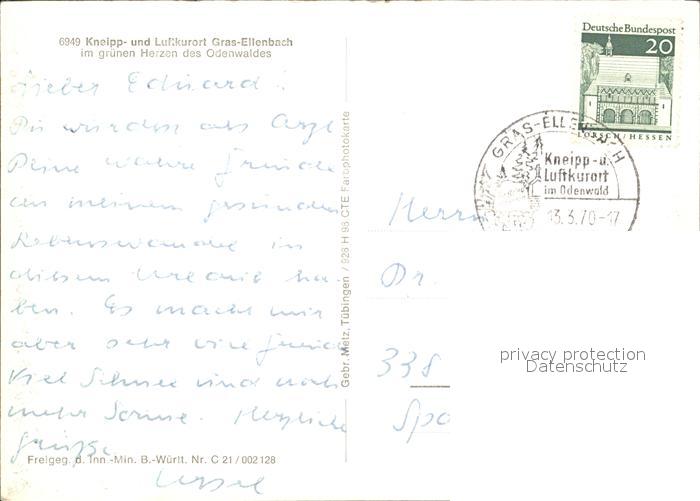 6949 Kneipp- und Luftkurort Gras-Ellenbach
im grünen Herzen des Odenwaldes
Lieber Eduard!
Du würdest als Arzt
Deine wahre Freude
an meinem gesunden
Lebenswandel in
diesem Urlaub ha-
ben. Es macht mir
aber sehr viel Freude
Viel Schnee und noch
mehr Sonne. Herzliche
Grüße
Ursel
Freigeg. d. Inn.-Min. B.-Württ. Nr. C 21/002128
Gebr. Metz, Tübingen / 928 H 98 CTE Farbphotokarte
Deutsche Bundespost
20
LORSCH/HESSEN
GRAS-ELLENBACH
Kneipp- u.
Luftkurort
im Odenwald
13.3.70-17
Herrn
Dr.
338
privacy protection
Datenschutz